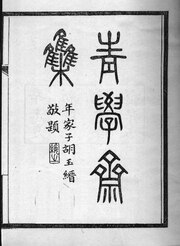 青學齋
雧
年家子胡玉縉
敬題